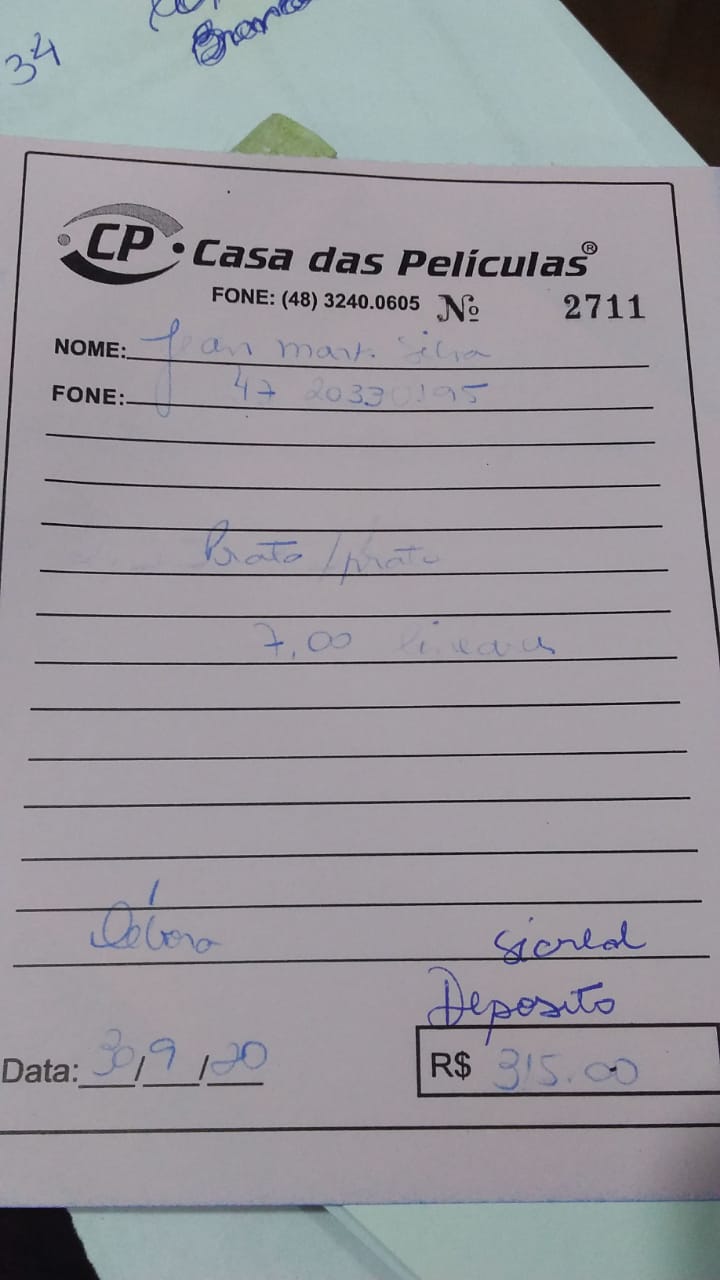 34
CP
Casa das Películas®
FONE: (48) 3240.0605 Nº 2711
NOME: Jean mart. Silva
FONE: 47 20330195
Prata / prata
7,00 lineares
Débora
sicred
Deposito
Data: 30/9/20
R$ 315.00